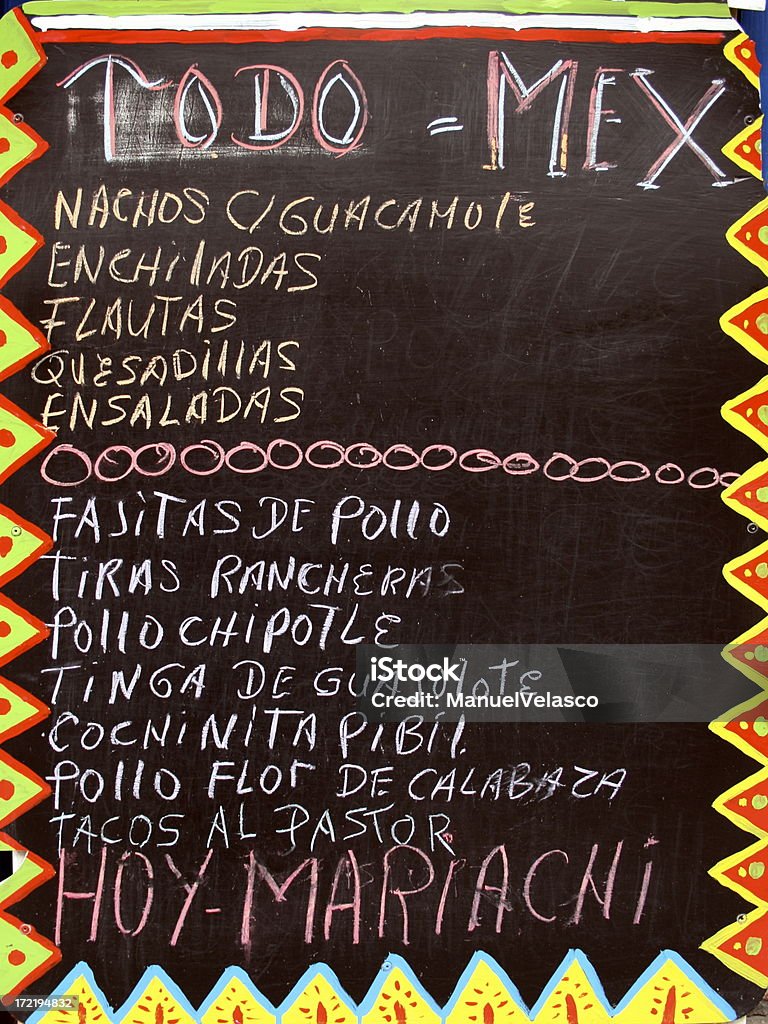 TODO = MEX
NACHOS C/GUACAMOlE
ENCHilADAS
FLAUTAS
QUESADIllAS
ENSALADAS
FAJiTAS DE POllO
TiRAS RANCHERAS
POllO CHiPOTLE
TiNGA DE GUAJOlOTE
COCHiNiTA PiBiL
POllO FLOR DE CALABAZA
TACOS AL PASTOR
HOY-MARiACHi
iStock
Credit: ManuelVelasco
172194832